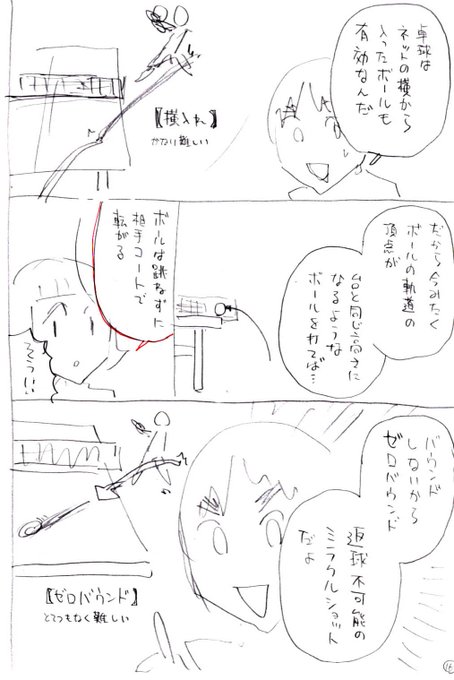 卓球は
ネットの横から
入ったボールも
有効なんだ
【横入れ】
かなり難しい
だから今みたく
ボールの軌道の
頂点が
台と同じ高さに
なるような
ボールを打てば…
ボールは跳なずに
相手コートで
転がる
バウンド
しないから
ゼロバウンド
返球不可能の
ミラクルショット
だよ
【ゼロバウンド】
とてつもなく難しい